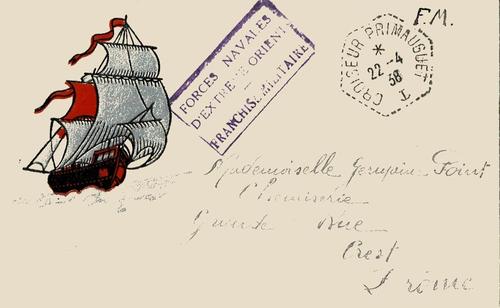 F.M.
FORCES NAVALES
D'EXTREME ORIENT
FRANCHISE MILITAIRE
CROISEUR PRIMAUGUET
*
22-4
38
Mademoiselle Germaine Point
Chemiserie
Grande Rue
Crest
Drôme